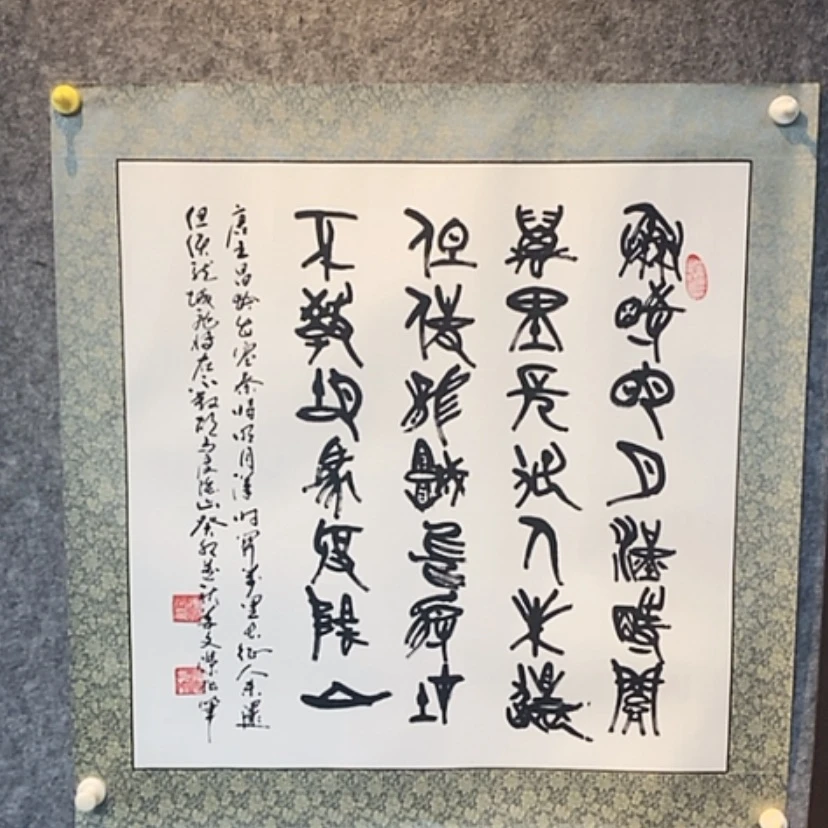 秦時明月漢時關
萬里長征人未還
但使龍城飛將在
不教胡馬度陰山
唐王昌龄出塞秦時明月漢時關萬里長征人未還
但使龍城飛將在不教胡馬度陰山癸卯